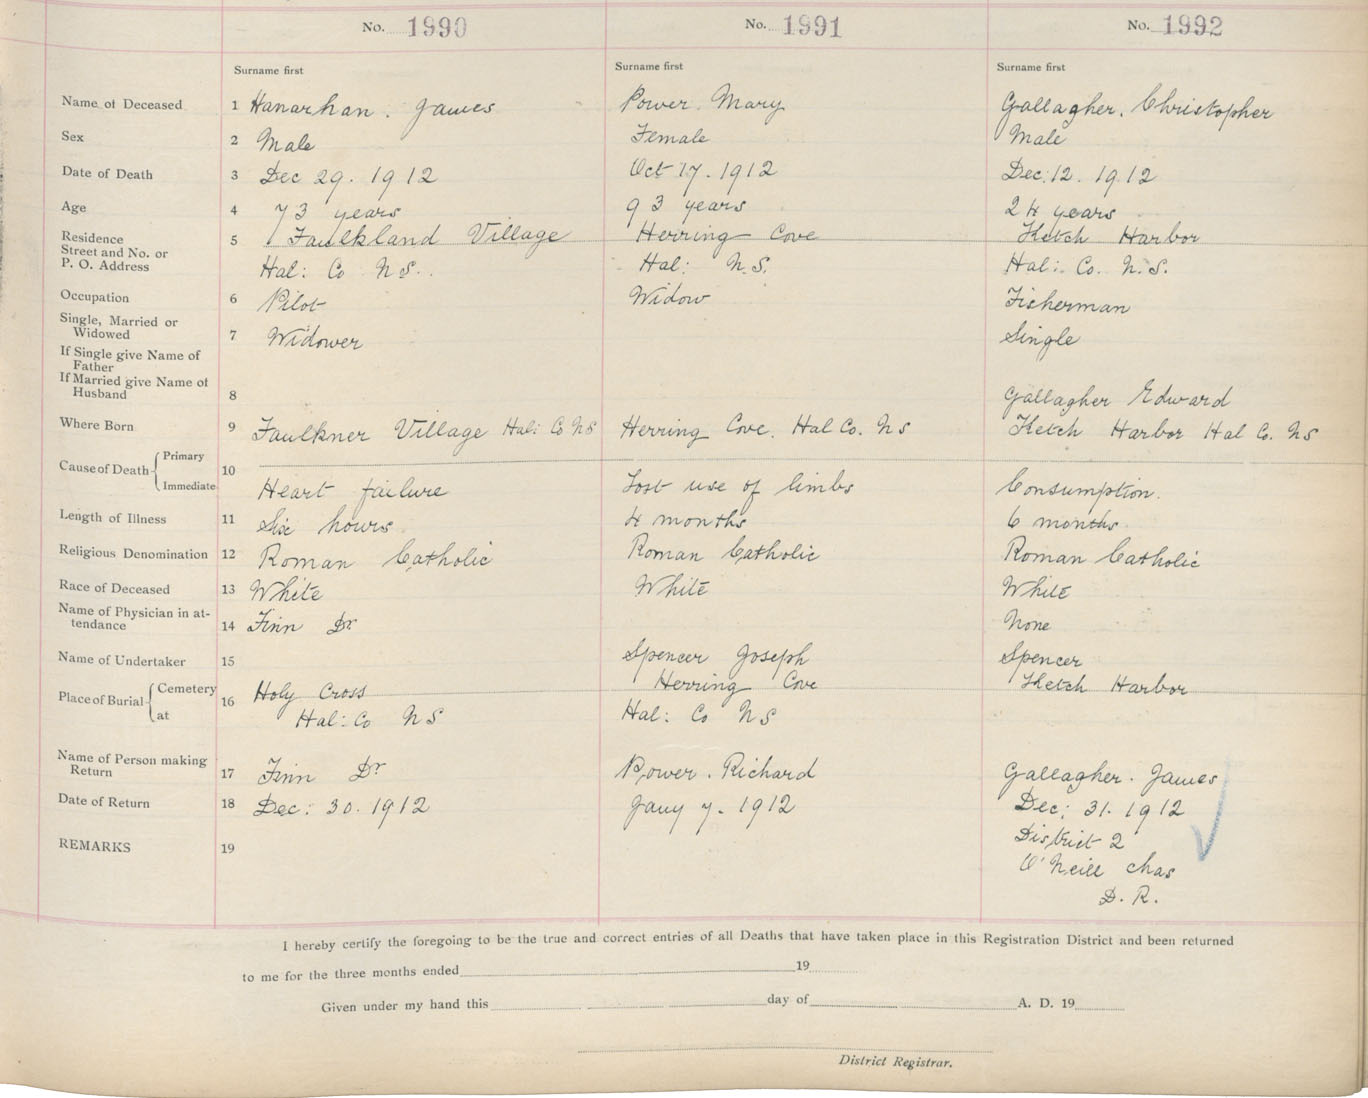 No. 1990 No. 1991 No. 1992
Surname first Surname first Surname first
Name of Deceased 1 Hanarhan. James Power. Mary Gallagher. Christopher
Sex 2 Male Female Male
Date of Death 3 Dec 29. 1912 Oct 17. 1912 Dec: 12. 1912
Age 4 73 years 93 years 24 years
Residence 5 Faulkland Village Herring Cove Ketch Harbor
Street and No. or
P. O. Address Hal: Co N S. Hal: N. S. Hal: Co. N. S.
Occupation 6 Pilot Widow Fisherman
Single, Married or
Widowed 7 Widower Single
If Single give Name of
Father
If Married give Name of
Husband 8 Gallagher Edward
Where Born 9 Faulkner Village Hal: Co N S Herring Cove. Hal Co. N S Ketch Harbor Hal Co. N S
Cause of Death Primary 10
Immediate Heart failure Lost use of limbs Consumption.
Length of Illness 11 Six hours 4 months 6 months
Religious Denomination 12 Roman Catholic Roman Catholic Roman Catholic
Race of Deceased 13 White White White
Name of Physician in at-
tendance 14 Finn Dr None
Name of Undertaker 15 Spencer Joseph Spencer
Place of Burial Cemetery 16 Holy Cross Herring Cove Ketch Harbor
at Hal: Co N S Hal: Co N S
Name of Person making
Return 17 Finn Dr Power. Richard Gallagher. James
Date of Return 18 Dec: 30. 1912 Jany 7. 1912 Dec: 31. 1912
REMARKS 19 District 2
O'Neill Chas
D. R.
I hereby certify the foregoing to be the true and correct entries of all Deaths that have taken place in this Registration District and been returned
to me for the three months ended 19
Given under my hand this day of A. D. 19
District Registrar.